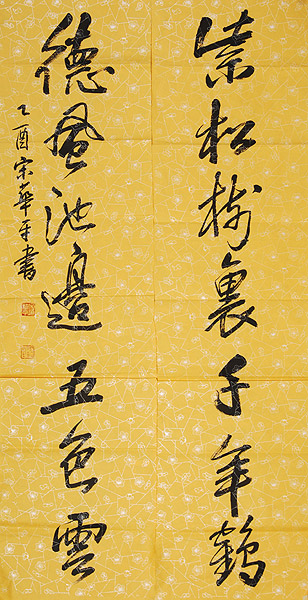 紫松树裏千年鹤
德风池邊五色雲
乙酉宋華平書